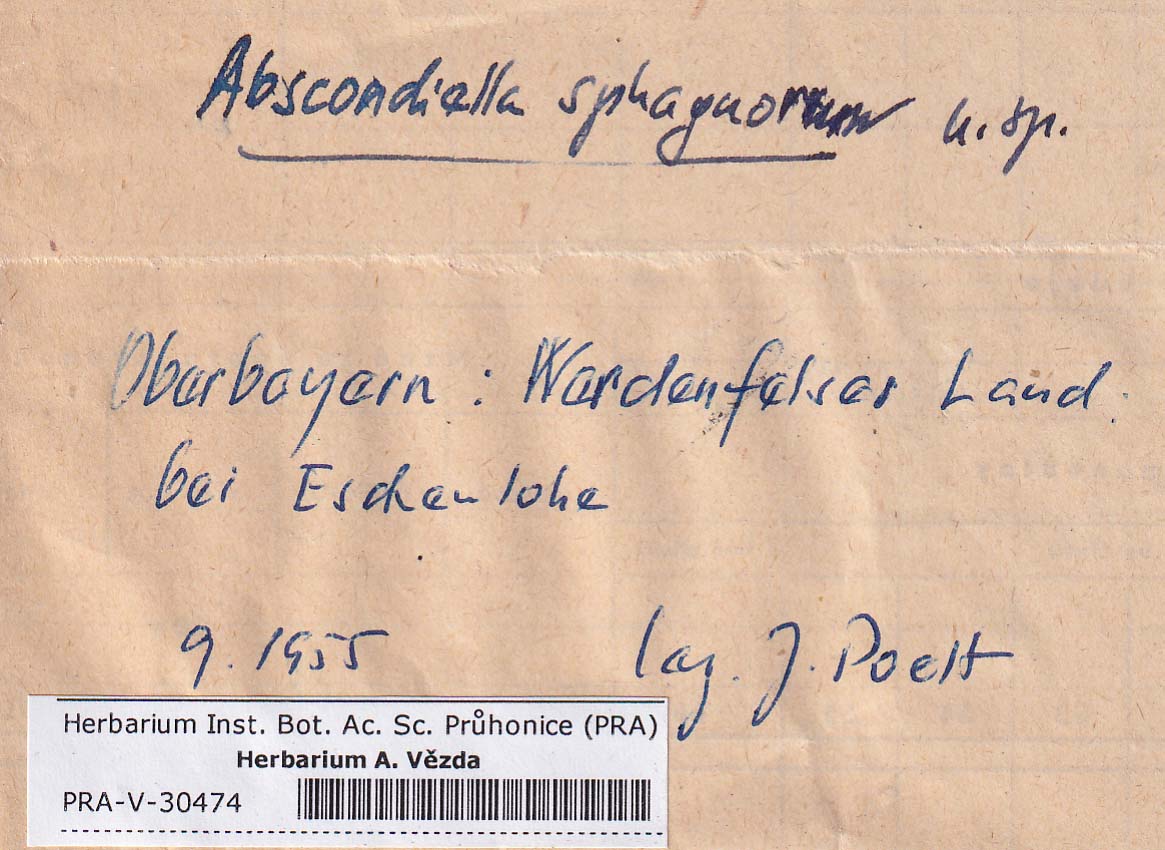 Abscondiella sphagnorum n. sp.
Oberbayern: Werdenfelser Land.
bei Eschenlohe
9. 1955 leg. J. Poelt
Herbarium Inst. Bot. Ac. Sc. Průhonice (PRA)
Herbarium A. Vězda
PRA-V-30474